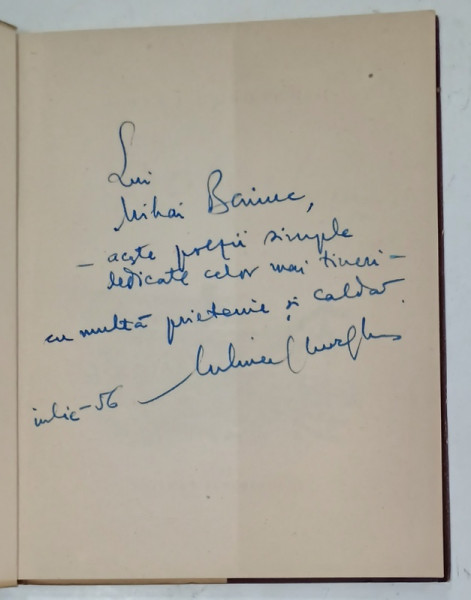 Lui
Mihai Beniuc,
— aceste poezii simple
dedicate celor mai tineri —
cu multă prietenie și caldă
iulie - 56